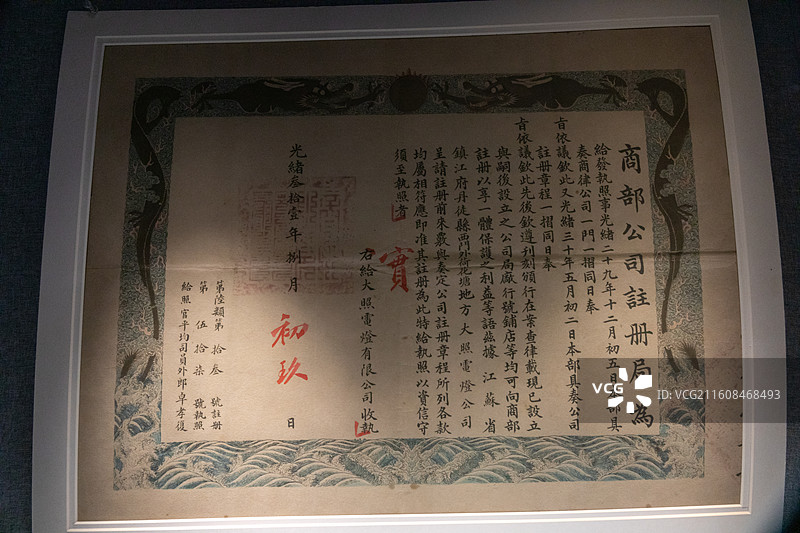 商部公司註冊局為
給發執照事光緒二十九年十二月初五日本部具
奏商律公司一門一摺同日奉
旨依議欽此又光緒三十年五月初二日本部具奏公司
註冊章程一摺同日奉
旨依議欽此先後欽遵刊刻頒行在案查律載現已設立
與嗣後設立之公司局廠行號鋪店等均可向商部
註冊以享一體保護之利益等語茲據江蘇省
鎮江府丹徒縣西門外荷花塘地方大照電燈公司
呈請註冊前來覈與奏定公司註冊章程所列各款
均屬相符應即准其註冊為此特給執照以資信守
須至執照者
實
右給大照電燈有限公司收執
光緒叁拾壹年捌月初玖日
第陸類第拾叁號註冊
第伍拾柒號執照
給照官平均司員外郎卓孝復
VCG
VCG211608468493